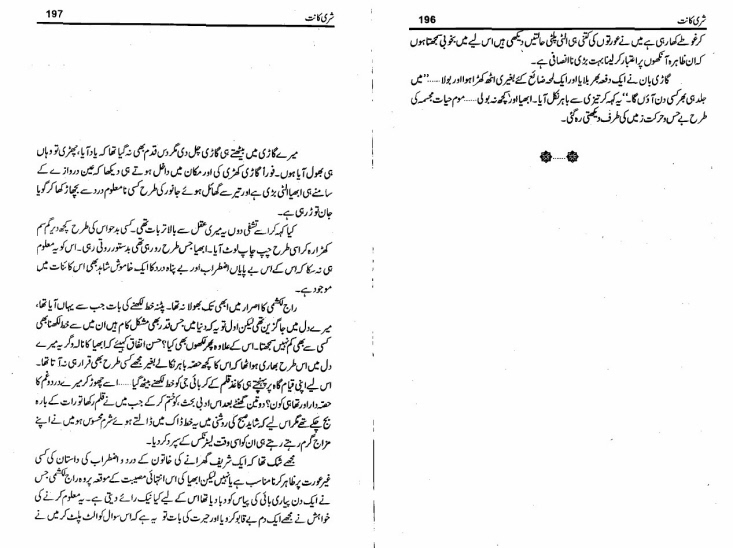 شری کانت
196
کر غوطے کھا رہی ہے میں نے عورتوں کی کتنی ہی الٹی پلٹی حالتیں دیکھی ہیں اس لیے میں بخوبی سمجھتا ہوں
کہ ان ظاہرہ آنکھوں پر اعتبار کر لینا بہت بڑی ناانصافی ہے۔
گاڑی بان نے ایک دفعہ پھر بلایا اور ایک لمحہ ضائع کئے بغیر میں اٹھ کھڑا ہوا اور بولا ...... ’’میں
جلد ہی پھر کسی دن آؤں گا۔‘‘ یہ کہہ کر تیزی سے باہر نکل آیا۔ ابھیا اور کچھ نہ بولی ...... موم حیات مجسمہ کی
طرح بے حس و حرکت زمین کی طرف دیکھتی رہ گئی۔
شری کانت
197
میرے گاڑی میں بیٹھتے ہی گاڑی چل دی مگر دس قدم بھی نہ گیا تھا کہ یاد آیا، چھڑی تو وہاں
ہی بھول آیا ہوں۔ فوراً گاڑی کھڑی کی اور مکان میں داخل ہوتے ہی دیکھا کہ عین دروازے کے
سامنے ہی ابھیا الٹی پڑی ہے اور تیر سے گھائل ہوئے جانور کی طرح کسی نامعلوم درد سے پچھاڑ کھا کر گویا
جان توڑ رہی ہے۔
کیا کہہ کر اسے تشفی دوں یہ میری عقل سے بالاتر بات تھی۔ کسی بدحواس کی طرح کچھ دیر گم سم
کھڑا رہ کر اسی طرح چپ چاپ لوٹ آیا۔ ابھیا جس طرح رو رہی تھی بدستور روتی رہی۔ اس کو یہ معلوم
ہی نہ ہو سکا کہ اس کے اس بے پایاں اضطراب اور بے پناہ درد کا ایک خاموش شاہد بھی اس کائنات میں
موجود ہے۔
راج لکشمی کا اصرار میں ابھی تک بھولا نہ تھا۔ پٹنہ خط لکھنے کی بات جب سے یہاں آیا تھا،
میرے دل میں جاگزین تھی لیکن اول تو یہ کہ دنیا میں جس قدر بھی مشکل کام ہیں ان میں سے خط لکھنا بھی
کسی سے بھی کم نہیں سمجھتا۔ اس کے علاوہ پھر لکھوں بھی کیا؟ حسن اتفاق کہیئے کہ ابھیا کا نالہ و گریہ میرے
دل میں اس طرح بھاری ہوا تھا کہ اس کا کچھ حصہ باہر نکالے بغیر مجھے کسی طرح بھی قرار ہی نہ آتا تھا۔
اس لیے اپنی قیام گاہ پر پہنچتے ہی کاغذ قلم لے کر بائی جی کو خط لکھنے بیٹھ گیا ...... اسے چھوڑ کر میرے درد و غم کا
حصہ دار اور تھا ہی کون؟ دو تین گھنٹے بعد اس ادبی بحث کو ختم کر کے جب میں نے قلم رکھا تو رات کے بارہ
بج چکے تھے مگر اس لیے کہ شاید صبح کی روشنی میں یہ خط ڈاک میں ڈالتے ہوئے شرم محسوس ہو میں نے اپنے
مزاج گرم رہتے رہتے ہی ان کو اسی وقت لیٹر بکس کے سپرد کر دیا۔
مجھے شک تھا کہ ایک شریف گھرانے کی خاتون کے درد و اضطراب کی داستان کی کسی
غیر عورت پر ظاہر کرنا مناسب ہے یا نہیں لیکن ابھیا کی اس انتہائی مصیبت کے موقعہ پر وہ راج لکشمی جس
نے ایک دن پیاری بائی کی پیاس کو دبا دیا تھا اس کے لیے کیا نیک رائے دیتی ہے۔ یہ معلوم کرنے کی
خواہش نے مجھے ایک دم بے قابو کر دیا اور حیرت کی بات تو یہ ہے کہ اس سوال کو الٹ پلٹ کر میں نے